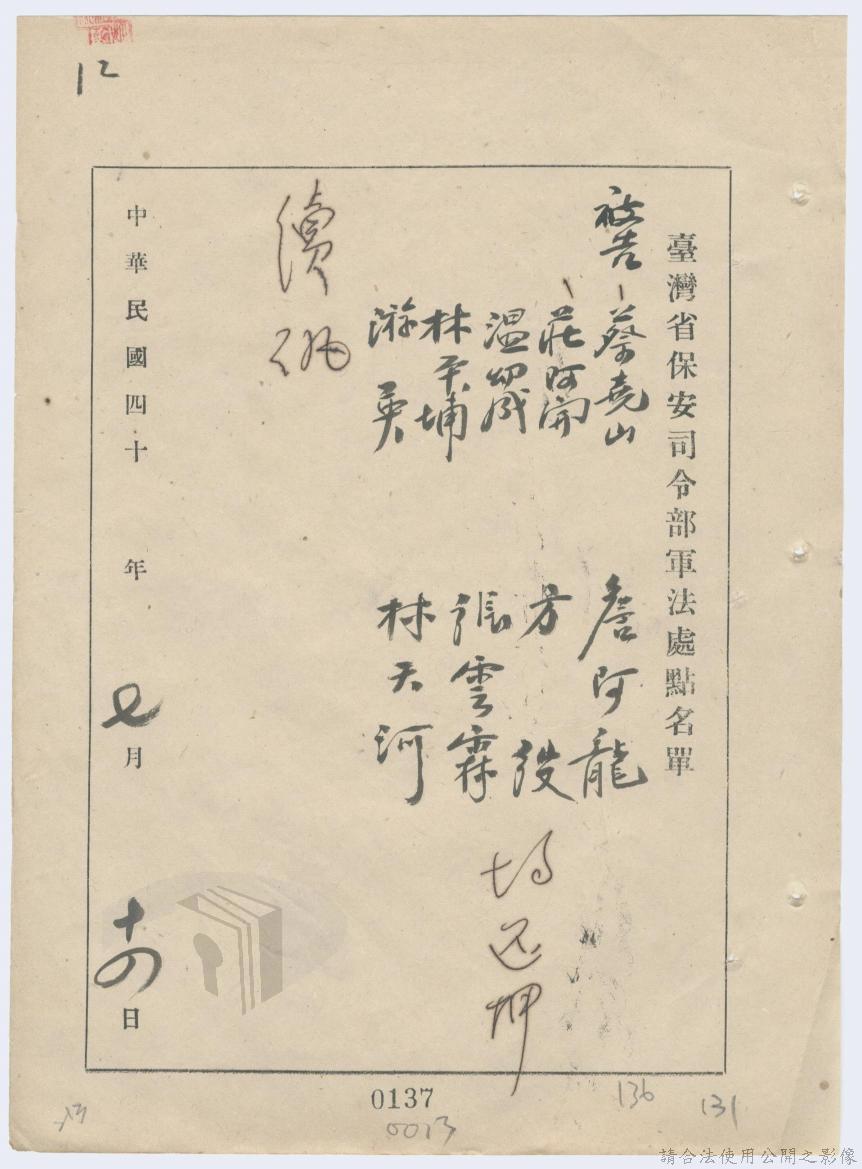 12
臺灣省保安司令部軍法處點名單
被告
蔡堯山
詹阿龍
莊阿開
方
溫
張雲霖
林天埔
林天河
游英
均還押
續訊
中華民國四十年七月十四日
0137
0013
136
131
請合法使用公開之影像